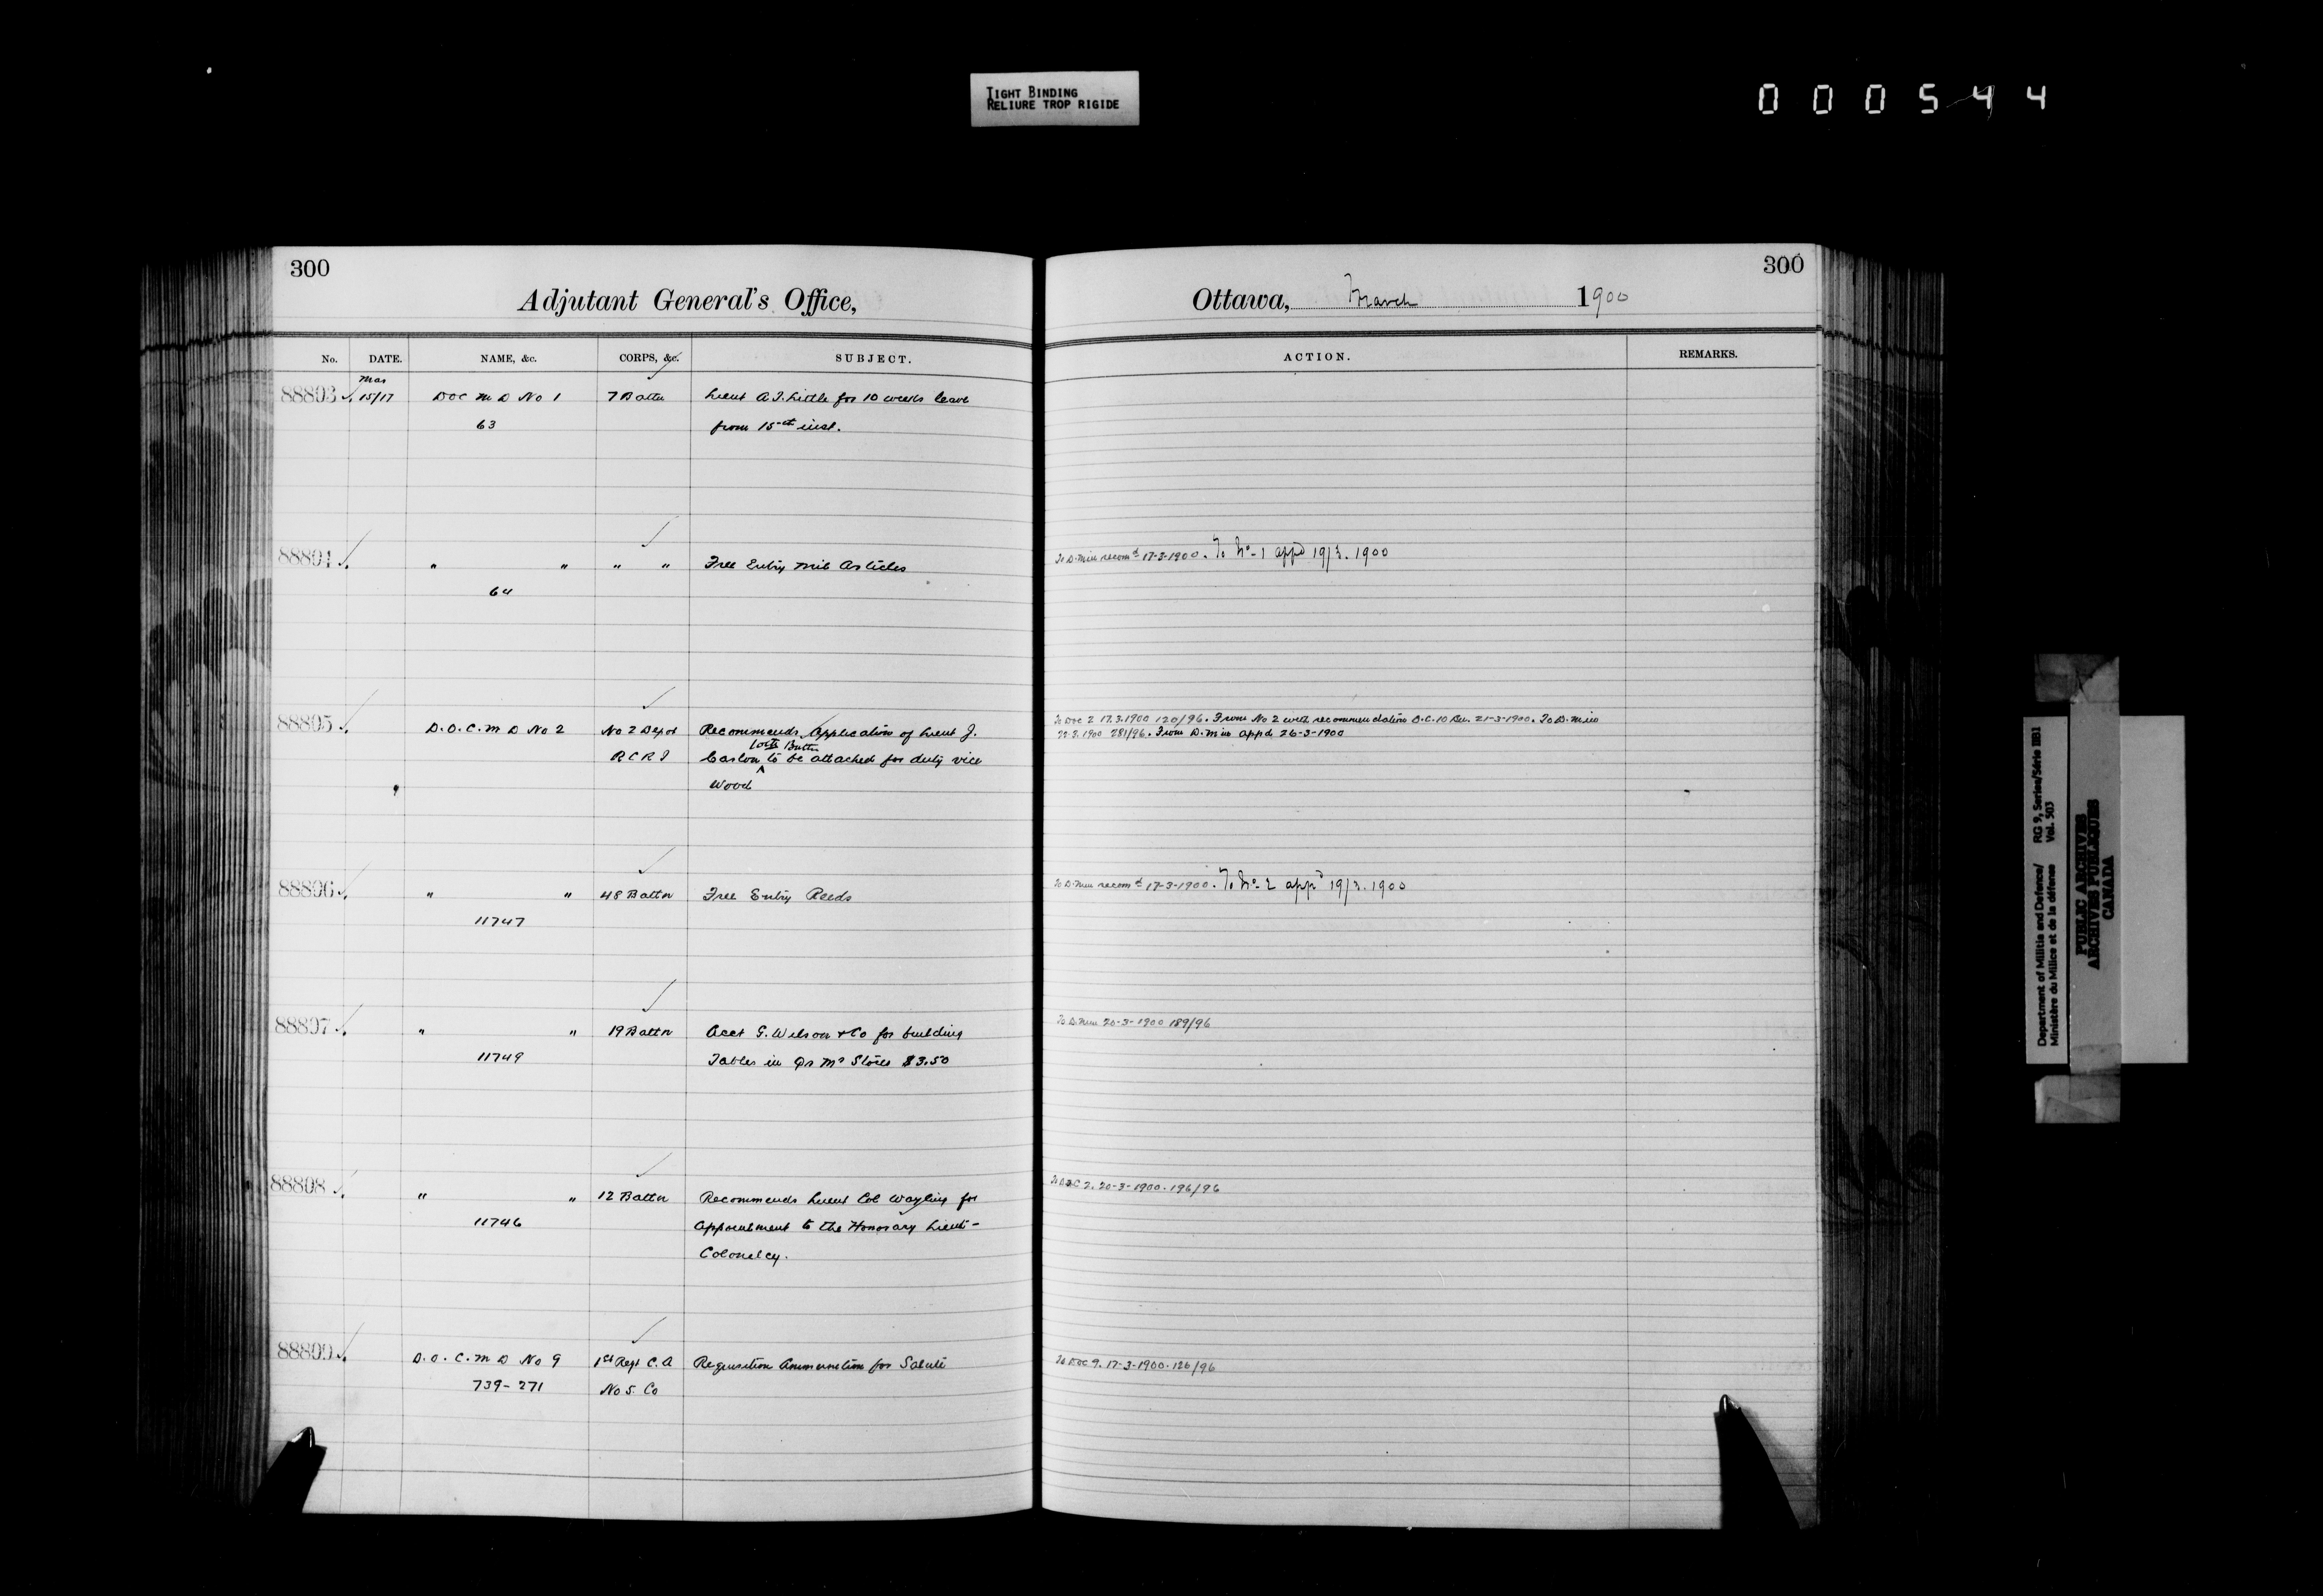 TIGHT BINDING
RELIURE TROP RIGIDE
000544
300
Adjutant General's Office,
No. DATE. NAME, &c. CORPS, &c. SUBJECT.
Mar
88803 15/17 DOC M D No 1 7 Battn Lieut A.J. Little for 10 weeks leave
63 from 15th inst.
88804 " " " " Free Entry Mil Articles
64
88805 D.O.C. M D No 2 No 2 Depot Recommends Application of Lieut J.
10th Battn
R C R I to be attached for duty vice
Wood
88806 " " 48 Battn Free Entry Reeds
11747
88807 " " 19 Battn Acct G. Wilson & Co for building
11749 Tables in Qr Mr Stores $3.50
88808 " " 12 Battn Recommends Lieut Col Wayling for
11746 Appointment to the Honorary Lieut-
Colonelcy.
88809 D.O.C. M D No 9 1st Regt C.A Requisition Ammunition for Salute
739-271 No 5. Co
300
Ottawa, March 1900
ACTION. REMARKS.
To D. Min recomd 17-3-1900. To No. 1 appd 19/3.1900
To DOC 2 17.3.1900 120/96. From No 2 with recommendation O.C. 10 Bn. 21-3-1900. To D. Min
22.3.1900 281/96. From D. Min appd 26-3-1900
To D. Min recomd 17-3-1900. To No. 2 appd 19/3.1900
To D. Min 20-3-1900 189/96
To DOC 2. 20-3-1900. 196/96
To DOC 9. 17-3-1900. 126/96
Department of Militia and Defence/ RG 9, Series/Série IIB1
Ministère du Milice et de la défense Vol. 503
PUBLIC ARCHIVES
ARCHIVES PUBLIQUES
CANADA